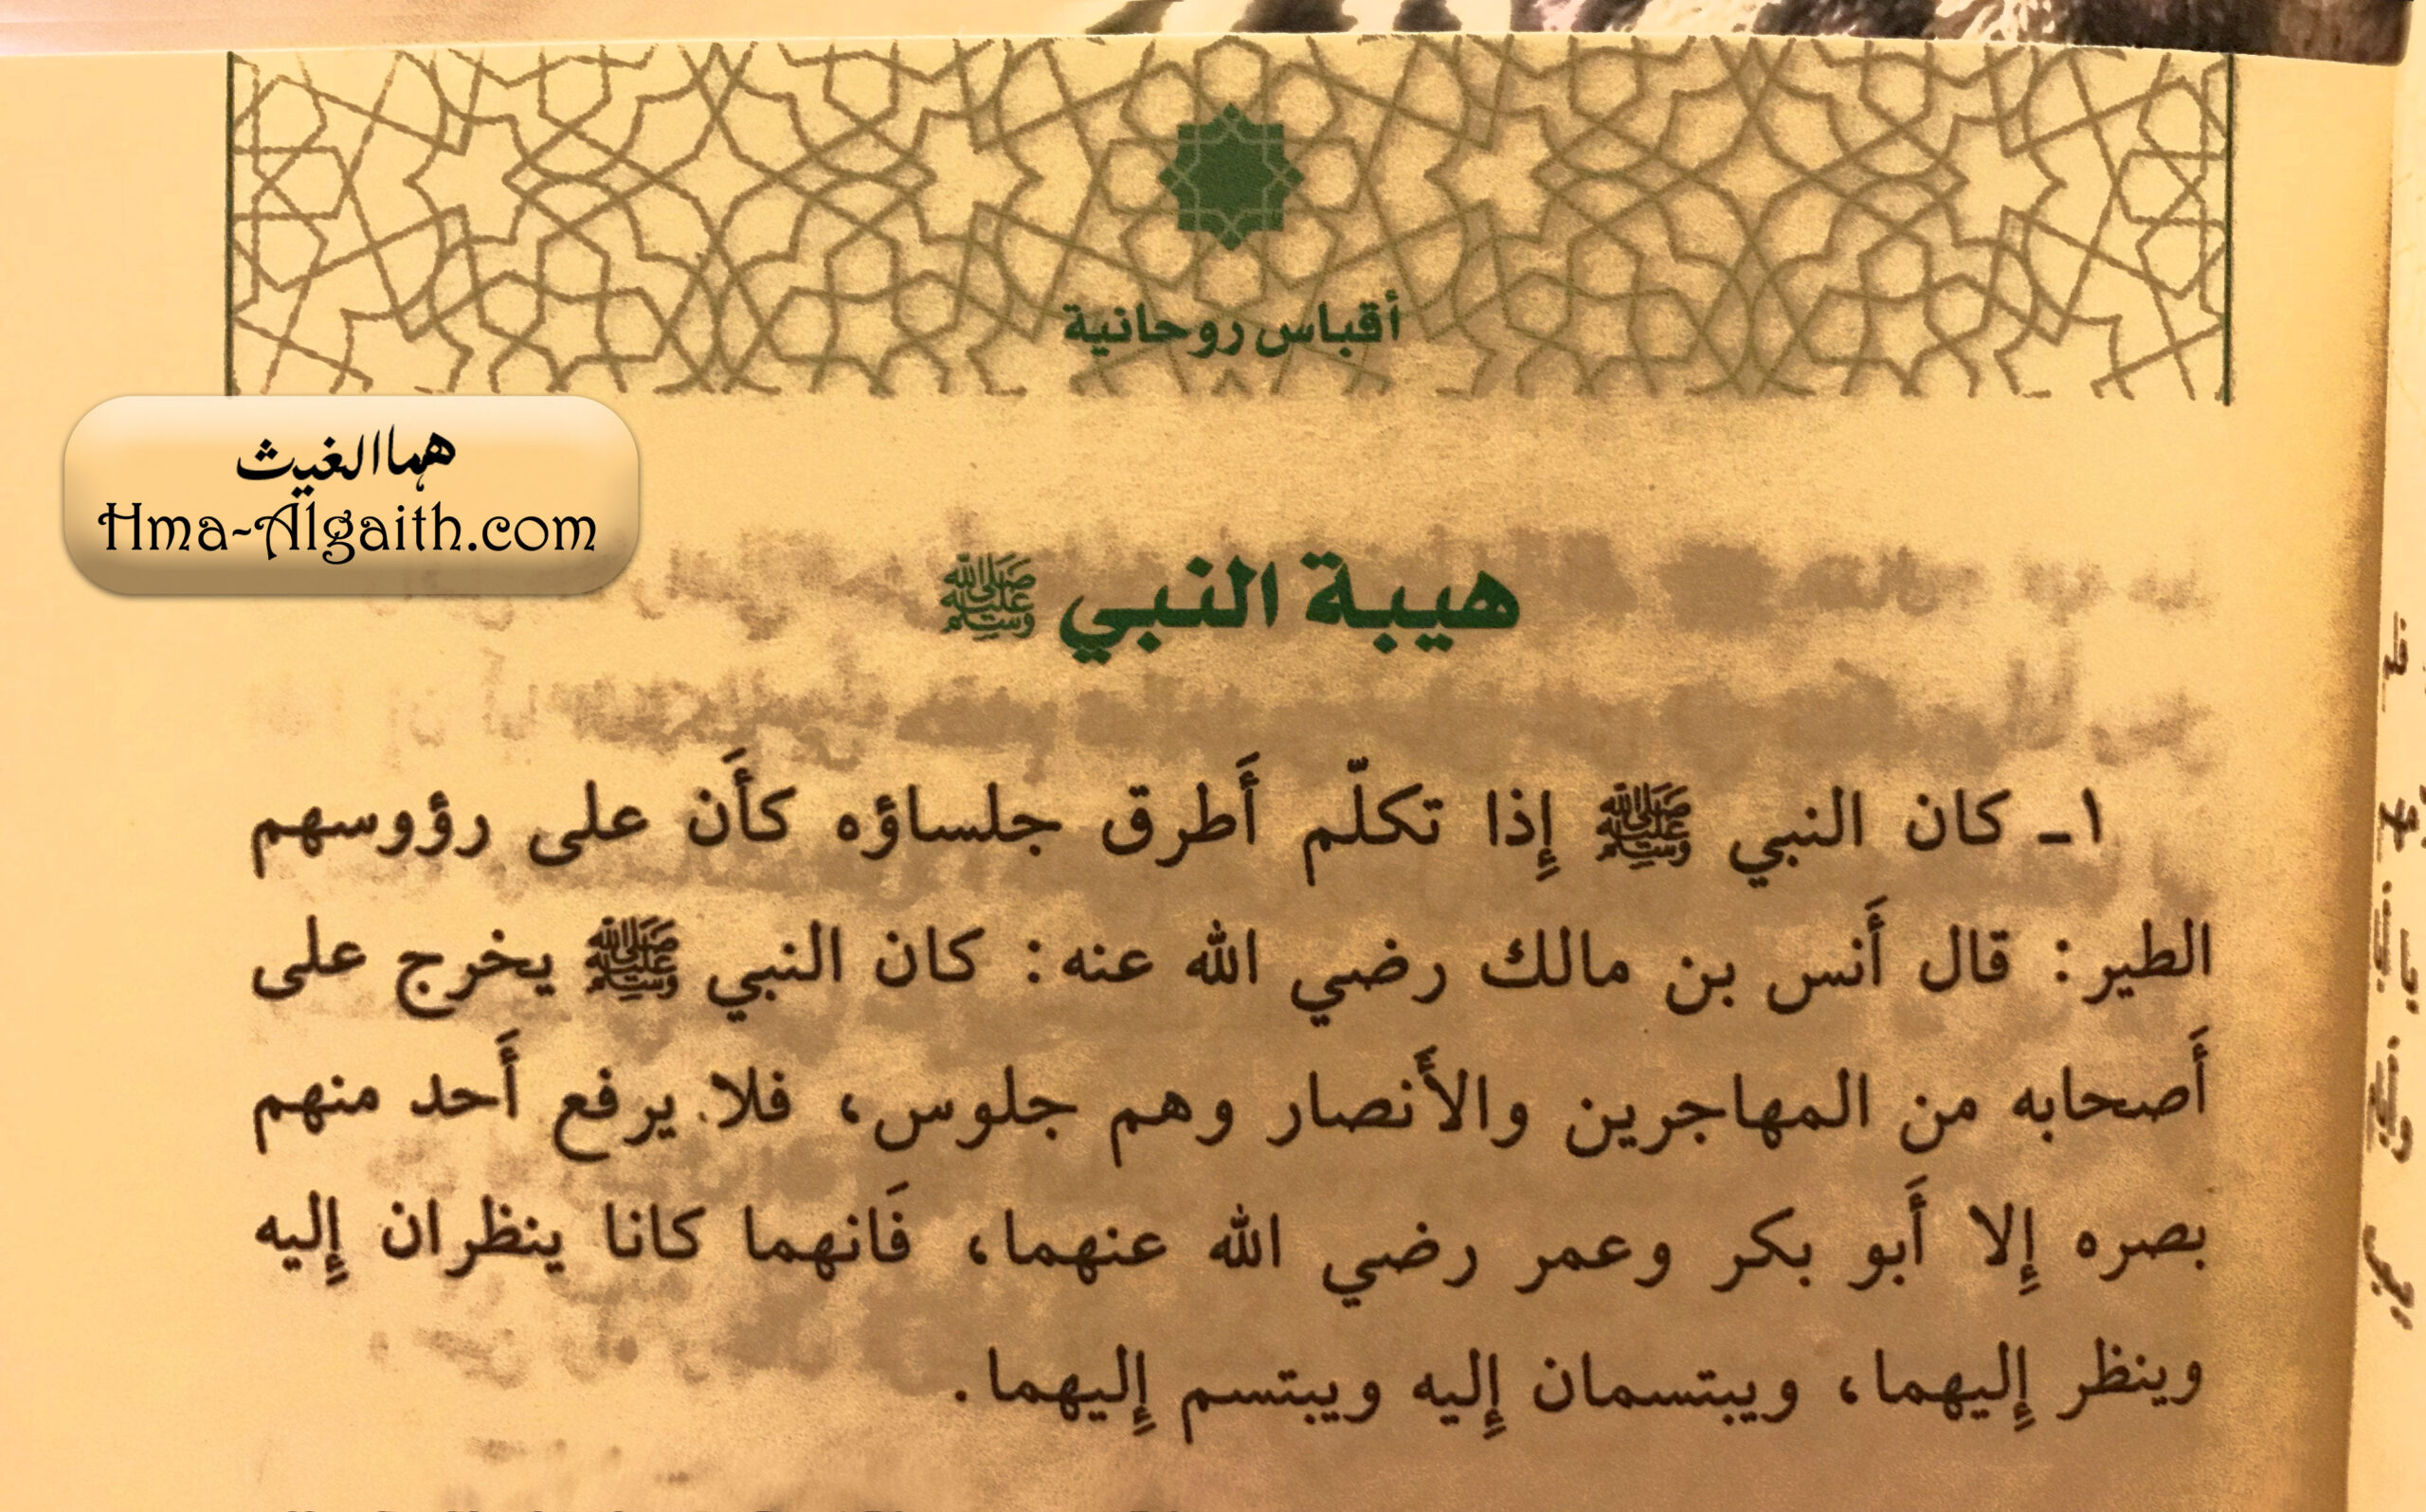 أقباس روحانية
هما الغيث
Hma-Algaith.com
هيبة النبي ﷺ
١ـ كان النبي ﷺ إِذا تكلّم أَطرق جلساؤه كأَن على رؤوسهم
الطير: قال أَنس بن مالك رضي الله عنه: كان النبي ﷺ يخرج على
أَصحابه من المهاجرين والأَنصار وهم جلوس، فلا يرفع أَحد منهم
بصره إِلا أَبو بكر وعمر رضي الله عنهما، فَانهما كانا ينظران إِليه
وينظر إِليهما، ويبتسمان إِليه ويبتسم إِليهما.